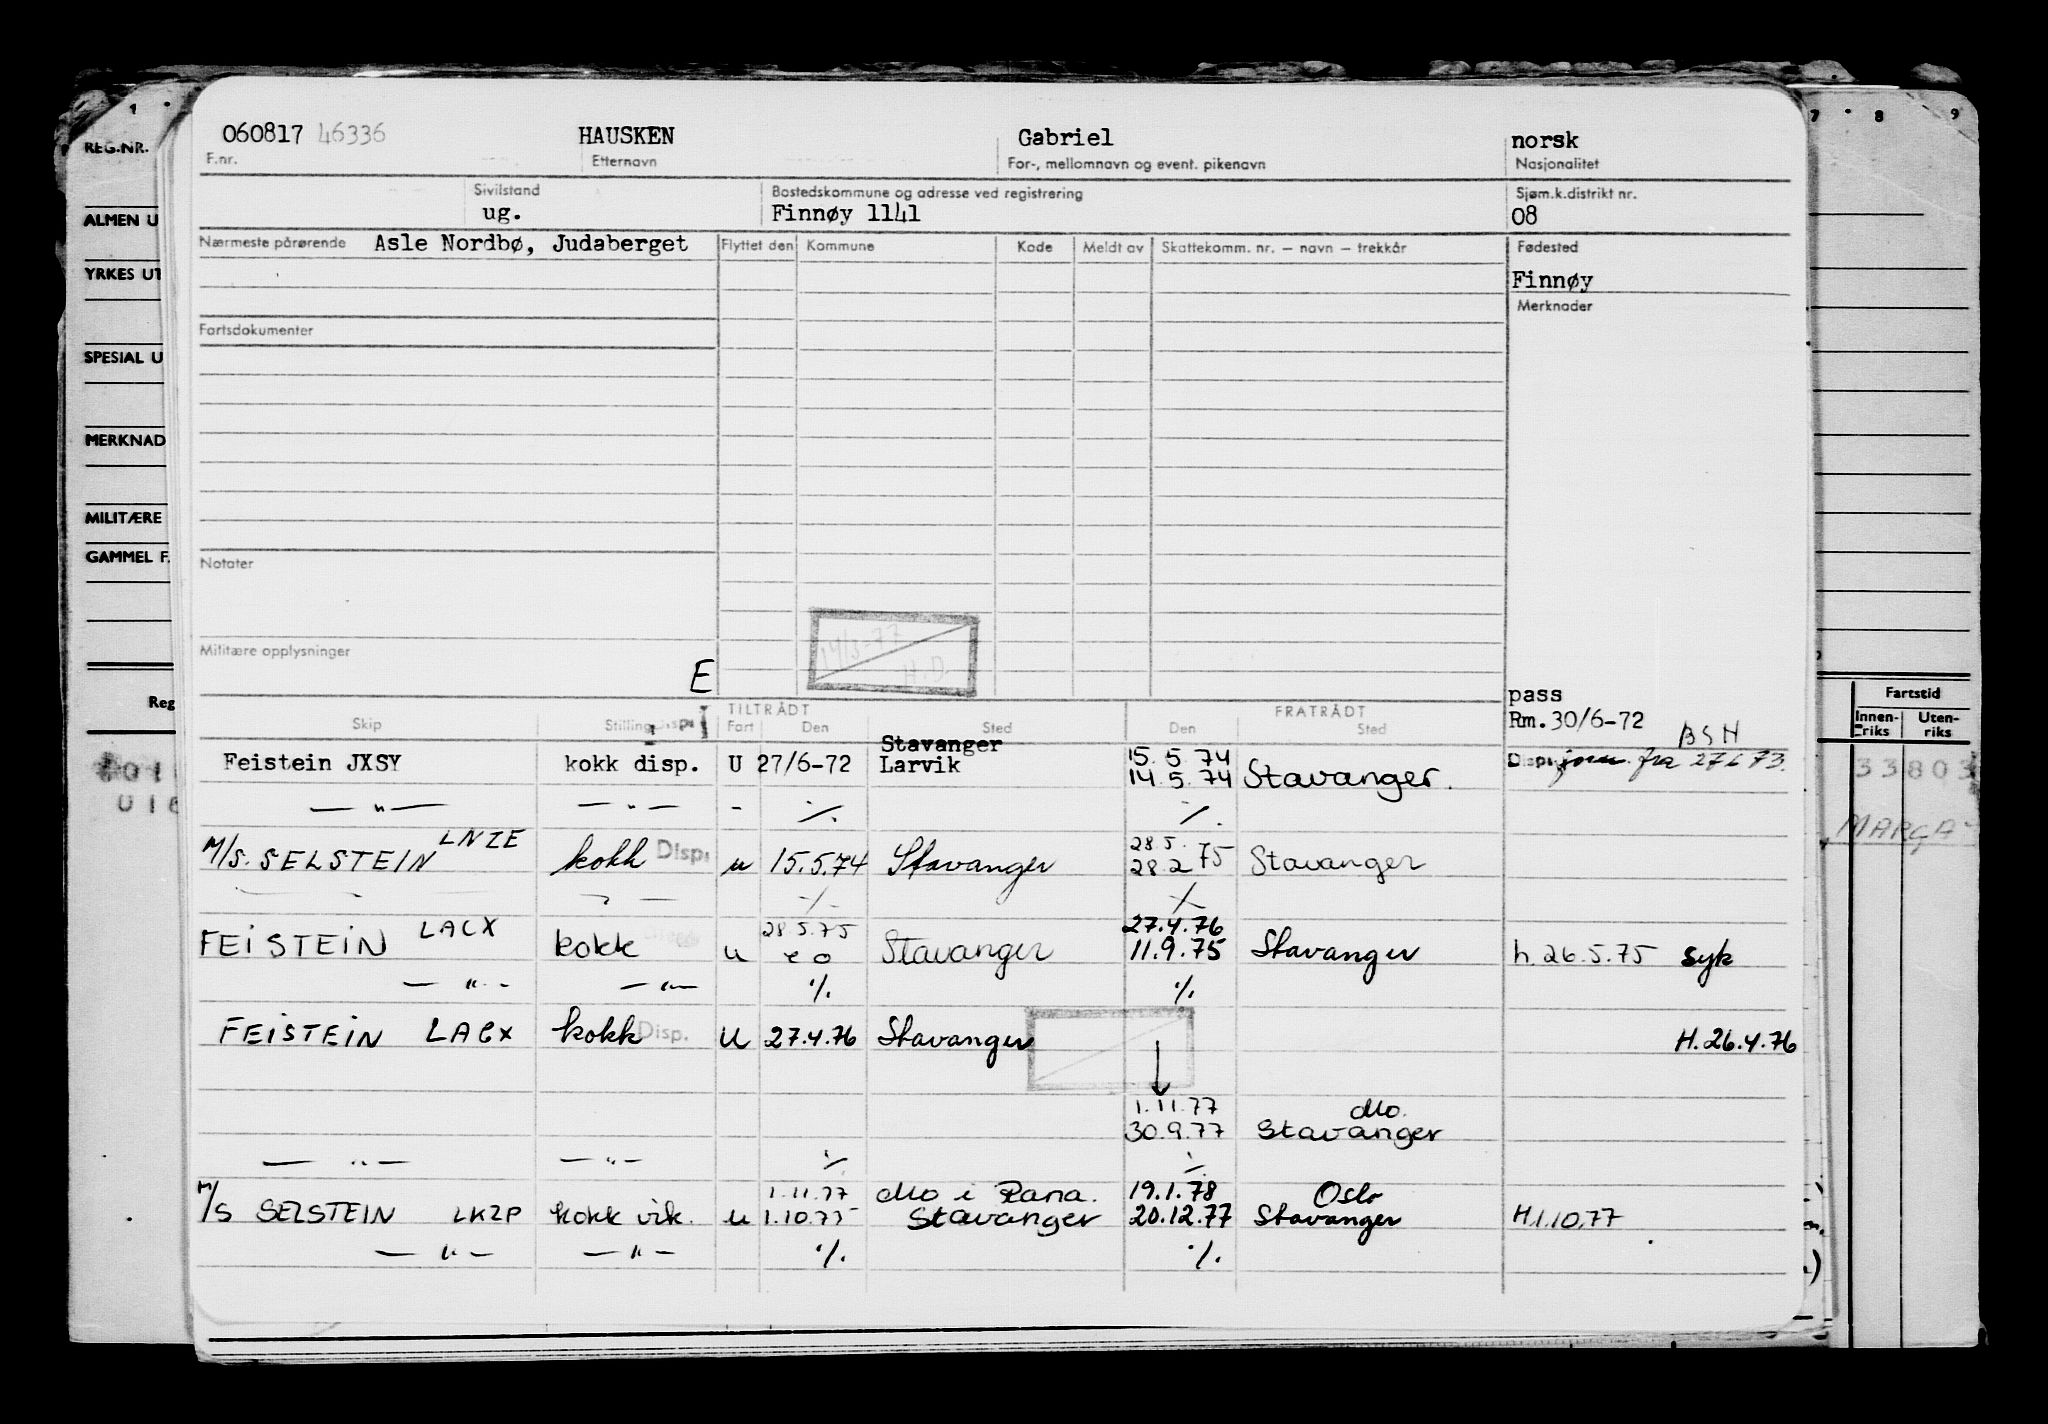 1
7 8 9
REG.NR.
060817 46336 HAUSKEN Gabriel norsk
F.nr. Etternavn For-, mellomnavn og event. pikenavn Nasjonalitet
Sivilstand Bostedskommune og adresse ved registrering Sjøm.k.distrikt nr.
ALMEN U
ug. Finnøy 1141 08
Nærmeste pårørende Asle Nordbø, Judaberget Flyttet den Kommune Kode Meldt av Skattekomm. nr. — navn — trekkår Fødested
YRKES UT
Finnøy
Merknader
Fartsdokumenter
SPESIAL U
MERKNAD
MILITÆRE
GAMMEL F.
Notater
14/3-77
H.D.
Militære opplysninger
E
pass
Reg
Fartstid
Innen-riks Uten-riks
TILTRÅDT FRATRÅDT
Skip Stilling Disp. Fart Den Sted Den Sted
Rm. 30/6-72
BSH
Stavanger 15.5.74
Feistein JXSY kokk disp. U 27/6-72 Larvik 14.5.74 Stavanger.
Disp. fra 27 6 73.
33803
016
— " — — " — - ·/. ·/.
MARGA
LNZE 28.5.
M/S. SELSTEIN kokk Disp. u 15.5.74 Stavanger 28.2 75 Stavanger
·/. ·/.
LACX 28.5.75 27.4.76
FEISTEIN kokk u Stavanger 11.9.75 Stavanger h. 26.5.75 syk
— " — — " — ·/. ·/.
FEISTEIN LACX kokk Disp. U 27.4.76 Stavanger H. 26.4.76
1.11.77 Mo.
30.9.77 Stavanger
— " — — " — ·/. ·/.
1.11.77 Mo i Rana. 19.1.78 Oslo
M/S SELSTEIN LKZP kokk vik. u 1.10.75 Stavanger 20.12.77 Stavanger H.1.10.77
— " — — " — ·/. ·/.